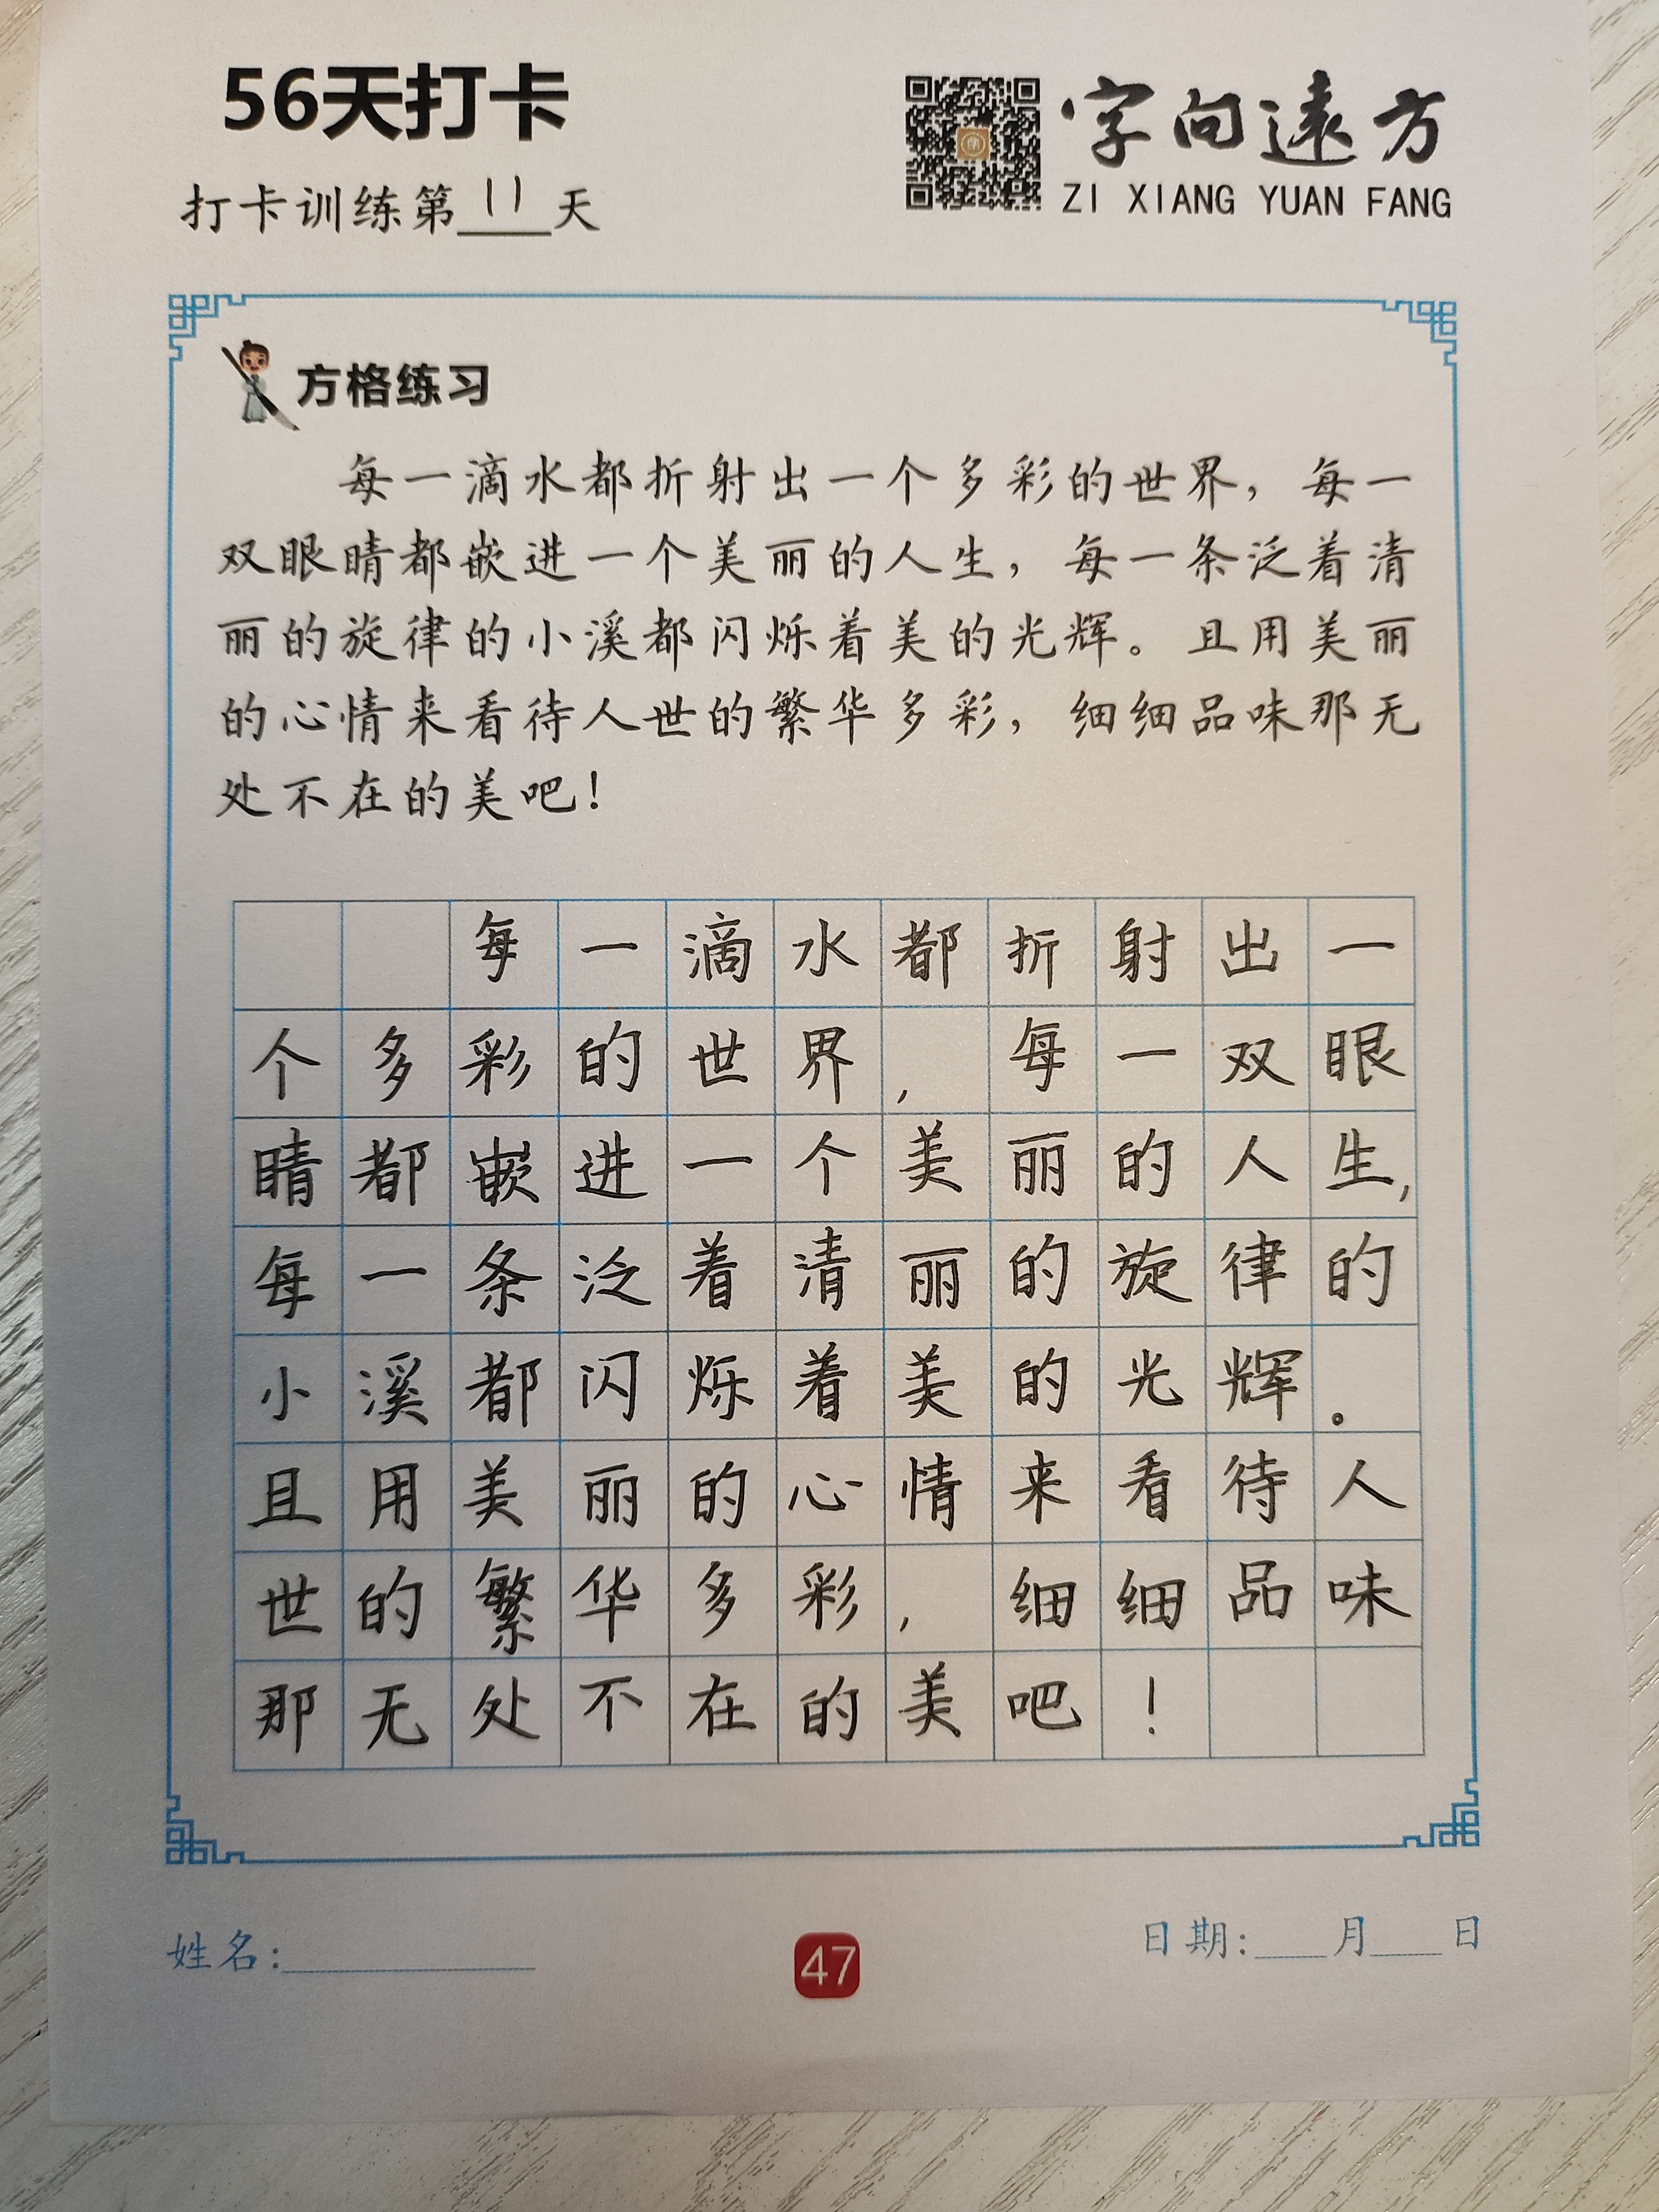 56天打卡
打卡训练第11天
字向遠方
ZI XIANG YUAN FANG
方格练习
每一滴水都折射出一个多彩的世界，每一
双眼睛都嵌进一个美丽的人生，每一条泛着清
丽的旋律的小溪都闪烁着美的光辉。且用美丽
的心情来看待人世的繁华多彩，细细品味那无
处不在的美吧！
每一滴水都折射出一
个多彩的世界，每一双眼
睛都嵌进一个美丽的人生，
每一条泛着清丽的旋律的
小溪都闪烁着美的光辉。
且用美丽的心情来看待人
世的繁华多彩，细细品味
那无处不在的美吧！
姓名：
47
日期：月日